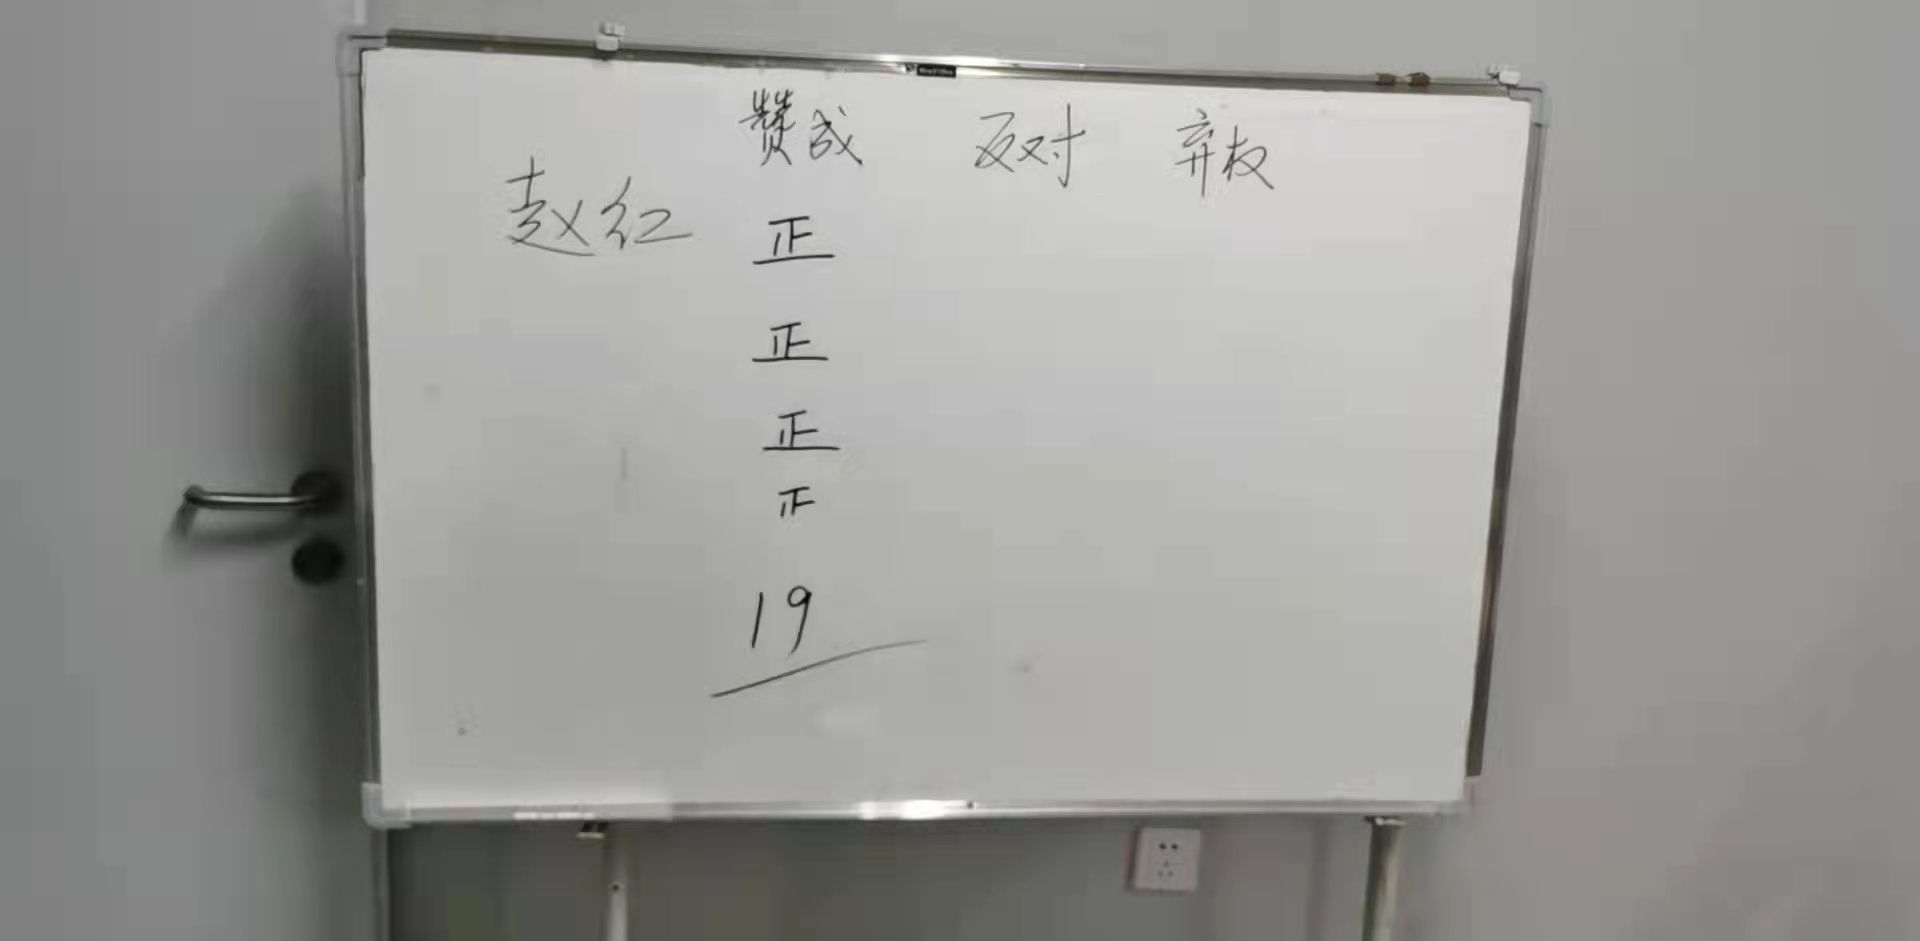 赞成 反对 弃权
赵红 正
正
正
𤴓
19